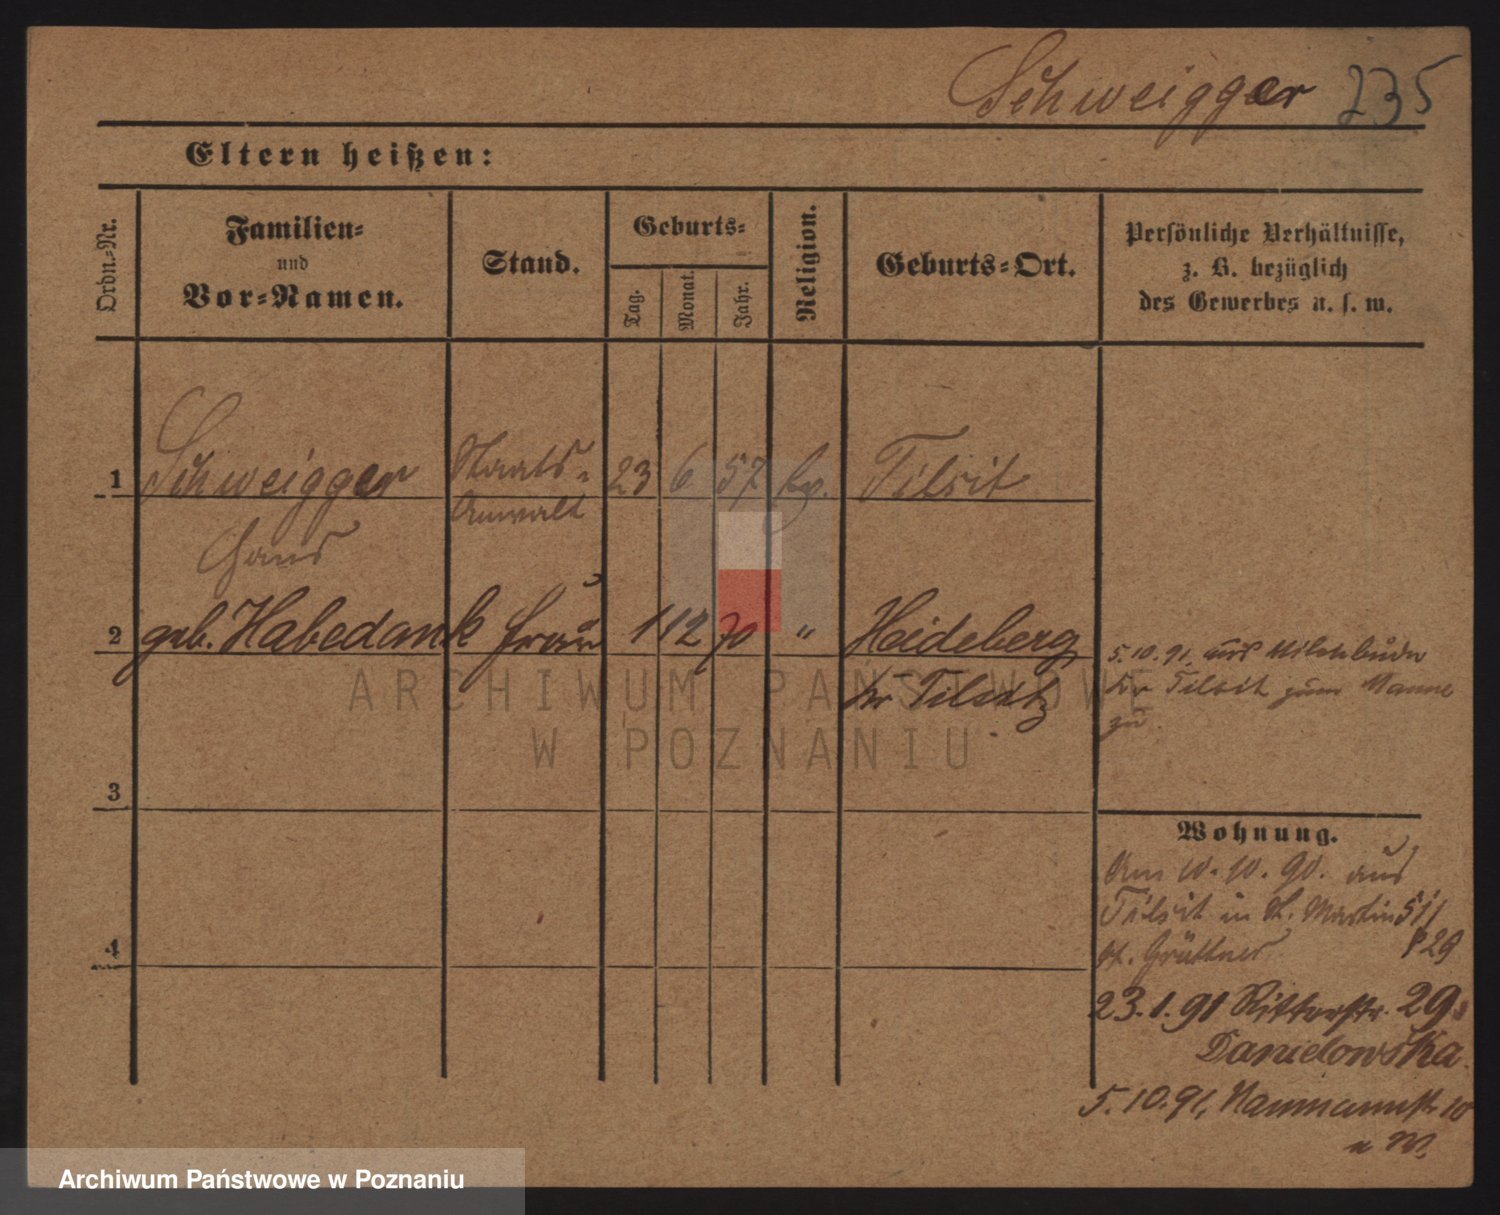 Schweigger 235
Eltern heißen:
Ordn.-Nr.
Familien-
und
Vor-Namen.
Stand.
Geburts-
Tag.
Monat.
Jahr.
Religion.
Geburts-Ort.
Persönliche Verhältnisse,
z. B. bezüglich
des Gewerbes u. s. w.
1 Schweigger Staats- 23 6 57 ev. Tilsit
Anwalt
Hans
2 geb. Habedank Frau 1 12 70 " Heideberg
Kr Tilsit
5.10.91. aus
Kr Tilsit zum Manne
zu.
3
Wohnung.
Am 10.10.90. aus
Tilsit in St. Martin 51/
Grüttner P 29
4
23.1.91 Ritterstr. 29.
Danielowska.
5.10.91, Naumannstr 10
u M.
ARCHIWUM PAŃSTWOWE
W POZNANIU
Archiwum Państwowe w Poznaniu